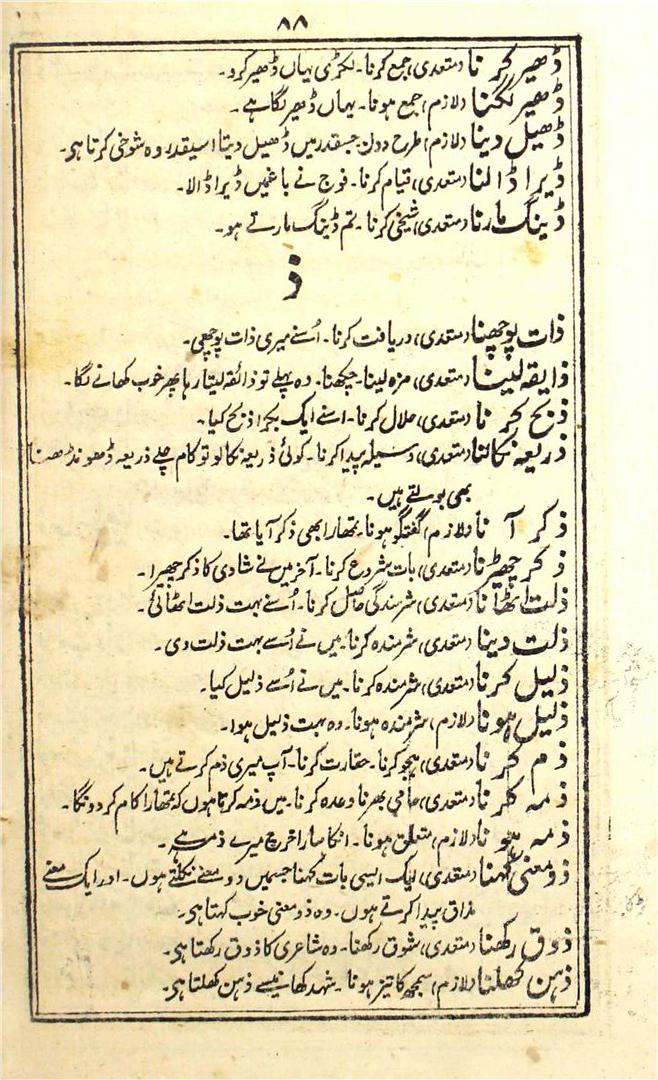 ۸۸
ڈھیر کرنا (متعدی) جمع کرنا۔ لکڑی یہاں ڈھیر کرو۔
ڈھیر لگنا (لازم) جمع ہونا۔ یہاں ڈھیر لگا ہے۔
ڈھیل دینا (لازم) طرح دون جسقدر میں ڈھیل دیتا اسیقدر وہ شوخی کرتا ہی۔
ڈیرا ڈالنا (متعدی) قیام کرنا۔ فوج نے باغمیں ڈیرا ڈالا۔
ڈینگ مارنا (متعدی) شیخی کرنا۔ تم ڈینگ مارتے ہو۔
ذ
ذات پوچھنا (متعدی) دریافت کرنا۔ اُسنے میری ذات پوچھی۔
ذایقہ لینا (متعدی) مزہ لینا۔ چکھنا۔ وہ پہلے تو ذائقہ لیتا رہا پھر خوب کھانے لگا۔
ذبح کرنا (متعدی) حلال کرنا۔ اسنے ایک بکرا ذبح کیا۔
ذریعہ نکالنا (متعدی) وسیلہ پیدا کرنا۔ کوئی ذریعہ نکالو تو کام چلے ذریعہ ڈھونڈھنا
بھی بولتے ہیں۔
ذکر آنا (لازم) گفتگو ہونا۔ تمھارا بھی ذکر آیا تھا۔
ذکر چھیڑنا (متعدی) بات شروع کرنا۔ آخر میں نے شادی کا ذکر چھیڑا۔
ذلت اٹھانا (متعدی) شرمندگی حاصل کرنا۔ اُسنے بہت ذلت اٹھائی۔
ذلت دینا (متعدی) شرمندہ کرنا۔ میں نے اُسے بہت ذلت دی۔
ذلیل کرنا (متعدی) شرمندہ کرنا۔ میں نے اُسے ذلیل کیا۔
ذلیل ہونا (لازم) شرمندہ ہونا۔ وہ بہت ذلیل ہوا۔
ذم کرنا (متعدی) ہجو کرنا۔ حقارت کرنا۔ آپ میری ذم کرتے ہیں۔
ذمہ کرنا (متعدی) حامی بھرنا وعدہ کرنا۔ میں ذمہ کرتا ہوں کہ تمھارا کام کر دونگا۔
ذمہ ہونا (لازم) متعلق ہونا۔ انکا سارا خرچ میرے ذمہ ہے۔
ذو معنی کہنا (متعدی) ایک ایسی بات کہنا جسمیں دو معنے نکلتے ہوں۔ اور ایک معنے
مذاق پیدا کرتے ہوں۔ وہ ذو معنی خوب کہتا ہی۔
ذوق رکھنا (متعدی) شوق رکھنا۔ وہ شاعری کا ذوق رکھتا ہی۔
ذہن کھلنا (لازم) سمجھ کا تیز ہونا۔ شہد کھانیسے ذہن کھلتا ہی۔